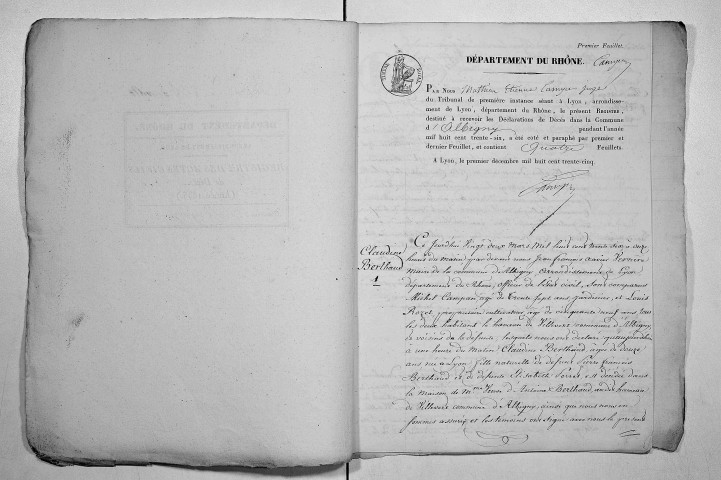 Premier Feuillet.
DÉPARTEMENT DU RHÔNE.
PAR NOUS Mathieu Etienne Camyer juge
du Tribunal de première instance séant à Lyon, arrondisse-
ment de Lyon, département du Rhône, le présent REGISTRE,
destiné à recevoir les Déclarations de Décès dans la Commune
d'Albigny pendant l'année
mil huit cent trente-six, a été coté et paraphé par premier et
dernier Feuillet, et contient Quatre Feuillets.
A Lyon, le premier décembre mil huit cent trente-cinq.
Claudine
Berthaud
1
Ce jourdhui vingt deux mars mil huit cent trente six à onze
heures du matin par devant nous Jean françois Xavier
Maire de la commune d'Albigny, arrondissement de Lyon
département du Rhône, officier de l'état civil, sont comparus
Michel Campan agé de trente sept ans jardinier, et Louis
Rozet, propriétaire cultivateur agé de cinquante neuf ans tous
les deux habitant le hameau de Villevert commune d'Albigny,
voisins de la défunte, lesquels nous ont déclaré
à une heure du matin Claudine Berthaud, agée de douze
ans née à Lyon fille naturelle de défunt Pierre françois
Berthaud et de défunte Elisabeth Perret est décédée dans
la maison de la veuve d'Antoine Berthaud, au dit hameau
de Villevert commune d'Albigny, ainsi que nous nous en
sommes assurés et les témoins ont signé avec nous le présent